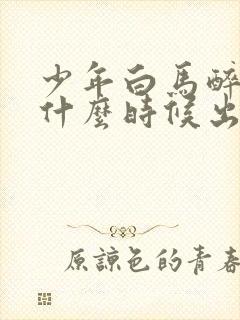 少年白馬醉
什麼時候出
原諒色的青春